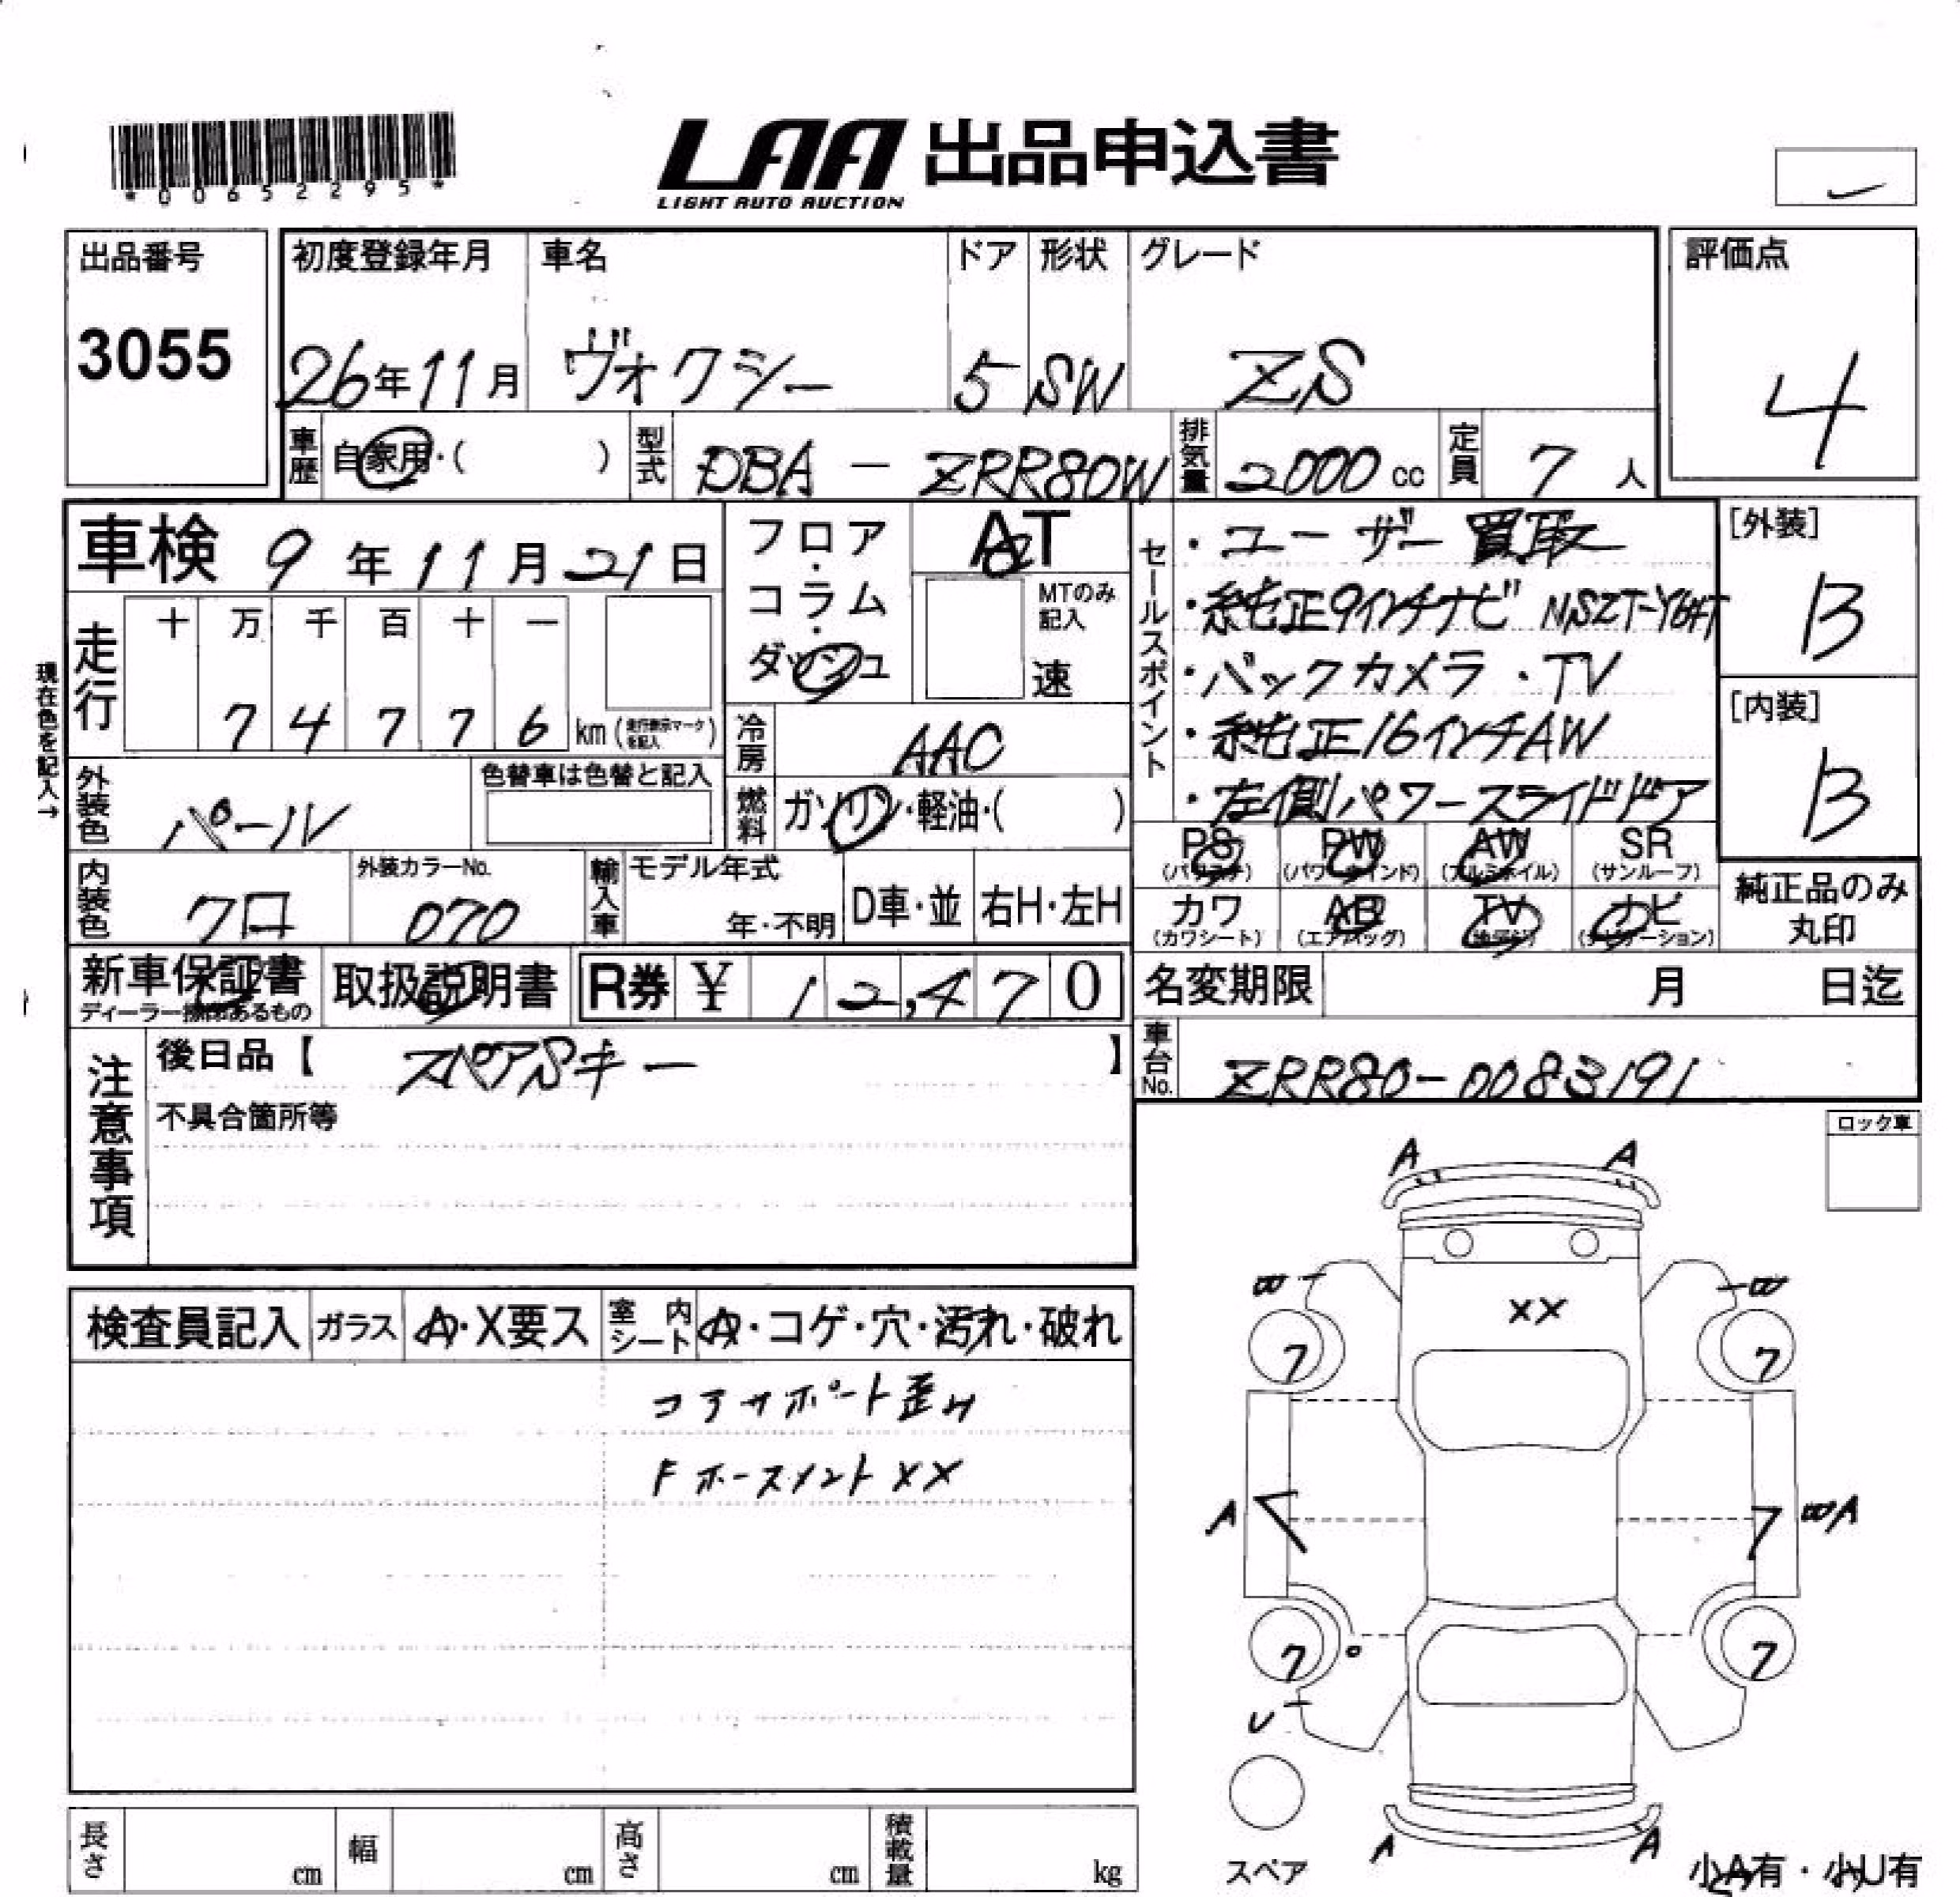 *00652295*
LAA 出品申込書
LIGHT AUTO AUCTION
出品番号
3055
初度登録年月
26年11月
車名
ヴォクシー
ドア
5
形状
SW
グレード
ZS
評価点
4
車歴 自家用・( )
型式 DBA - ZRR80W
排気量 2000 cc
定員 7 人
車検 9年11月21日
フロア・コラム・ダッシュ
AT
MTのみ記入
速
セールスポイント
・ユーザー買取
・純正9インチナビ NSZT-Y64T
・バックカメラ・TV
・純正16インチAW
・左側パワースライドドア
[外装]
B
[内装]
B
現在色を記入→
走行
十 万 千 百 十 一
7 4 7 7 6 km (走行表示マークを記入)
冷房 AAC
外装色 パール
色替車は色替と記入
燃料 ガソリン・軽油・( )
PS AW SR
(パワステ) (アルミホイル) (サンルーフ)
PW
(パワーウインド)
カワ AB TV ナビ
(カワシート) (エアバッグ) (ナビゲーション)
純正品のみ丸印
内装色 クロ
外装カラーNo.
070
輸入車
モデル年式
年・不明
D車・並
右H・左H
新車保証書
ディーラー捺印あるもの
取扱説明書
R券 ¥ 12,470
名変期限 月 日迄
車台No. ZRR80-0083191
注意事項
後日品【 スペアSキー 】
不具合箇所等
ロック車
検査員記入
ガラス A・X要ス
室内シート A・コゲ・穴・汚れ・破れ
コアサポート歪み
Fホースメント XX
A A
W W
XX
7 7
A WA
7 7
U
A A
スペア
小A有・小U有
長さ cm
幅 cm
高さ cm
積載量 kg